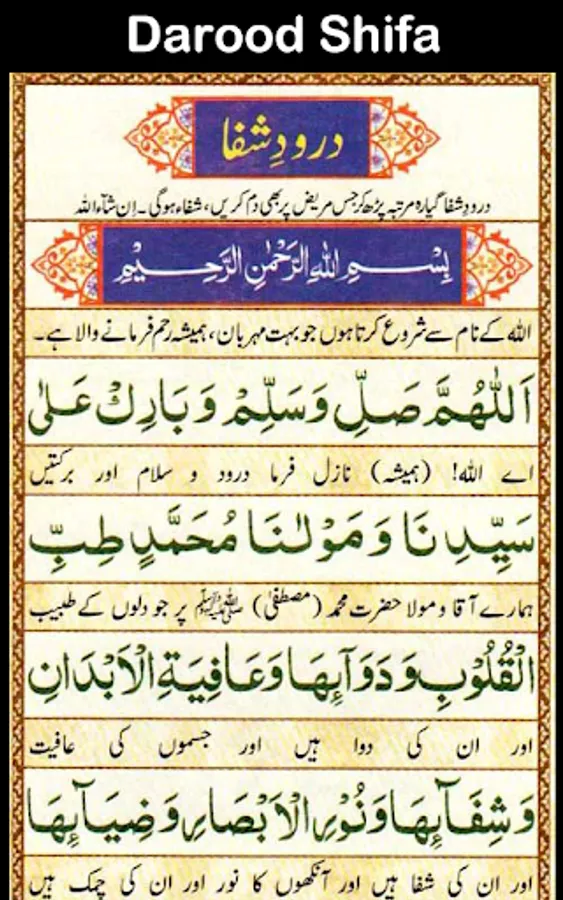 Darood Shifa
درودِ شفا
درودِ شفا گیارہ مرتبہ پڑھ کر جس مریض پر بھی دم کریں، شفاء ہوگی۔ اِن شآء اللہ
بِسْمِ اللهِ الرَّحْمٰنِ الرَّحِيْمِ
اللہ کے نام سے شروع کرتا ہوں جو بہت مہربان، ہمیشہ رحم فرمانے والا ہے۔
اَللّٰهُمَّ صَلِّ وَسَلِّمْ وَبَارِكْ عَلٰى
اے اللہ! (ہمیشہ) نازل فرما درود و سلام اور برکتیں
سَيِّدِنَا وَمَوْلٰنَا مُحَمَّدٍ طِبِّ
ہمارے آقا و مولا حضرت محمد (مصطفیٰ) ﷺ پر جو دلوں کے طبیب
الْقُلُوْبِ وَدَوَآئِهَا وَعَافِيَةِ الْاَبْدَانِ
اور ان کی دوا ہیں اور جسموں کی عافیت
وَشِفَآئِهَا وَنُوْرِ الْاَبْصَارِ وَضِيَآئِهَا
اور ان کی شفا ہیں اور آنکھوں کا نور اور ان کی چمک ہیں